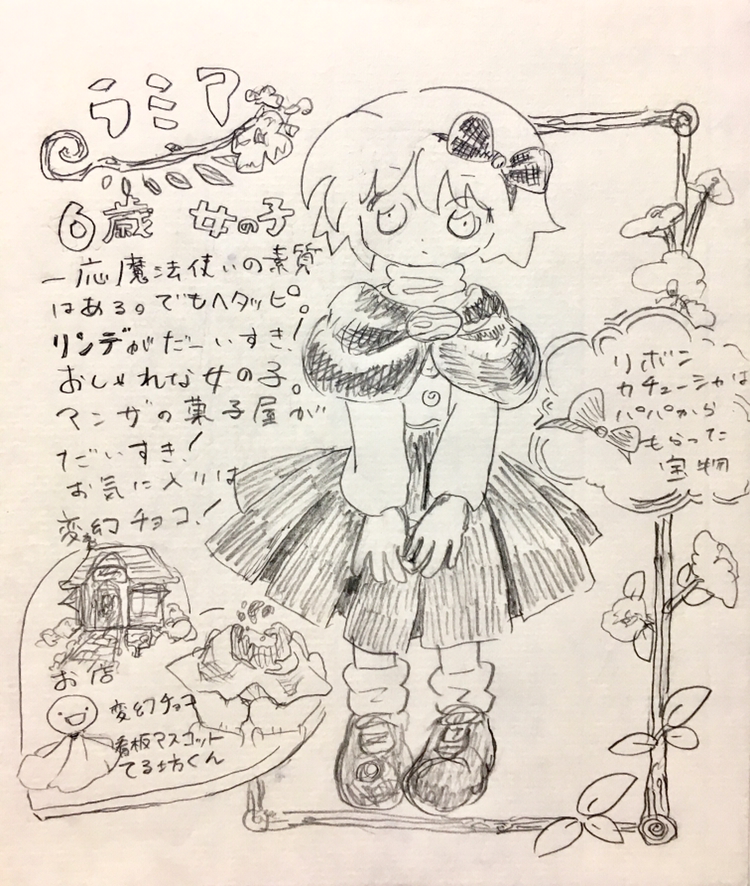 ラミア
6歳 女の子
一応魔法使いの素質
はある。でもヘタッピ。
リンデがだーいすき!
おしゃれな女の子。
マンザの菓子屋が
だいすき!
お気に入りは
変幻チョコ!
リボン
カチューシャは
パパから
もらった
宝物
お店
変幻チョコ
看板マスコット
てる坊くん